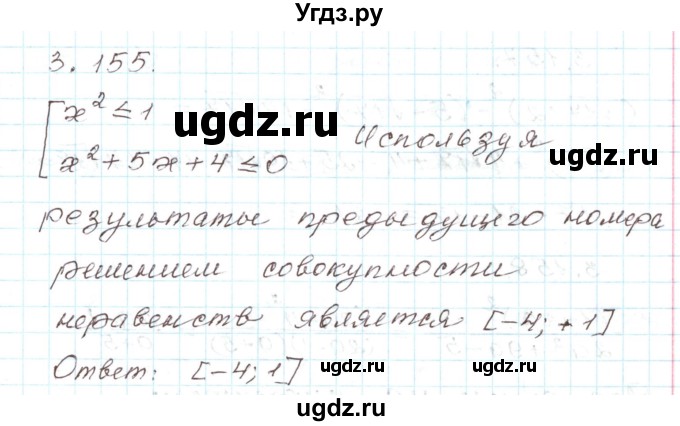 Угдз.ру
3. 155.
[x² ≤ 1
x² + 5x + 4 ≤ 0 Используя
ugdz.ru
ugdz.ru
результаты предыдущего номера
решением совокупности
ugdz.ru
неравенств является [-4; +1]
Ответ: [-4; 1]
ugdz.ru
ugdz.ru
ugdz.ru